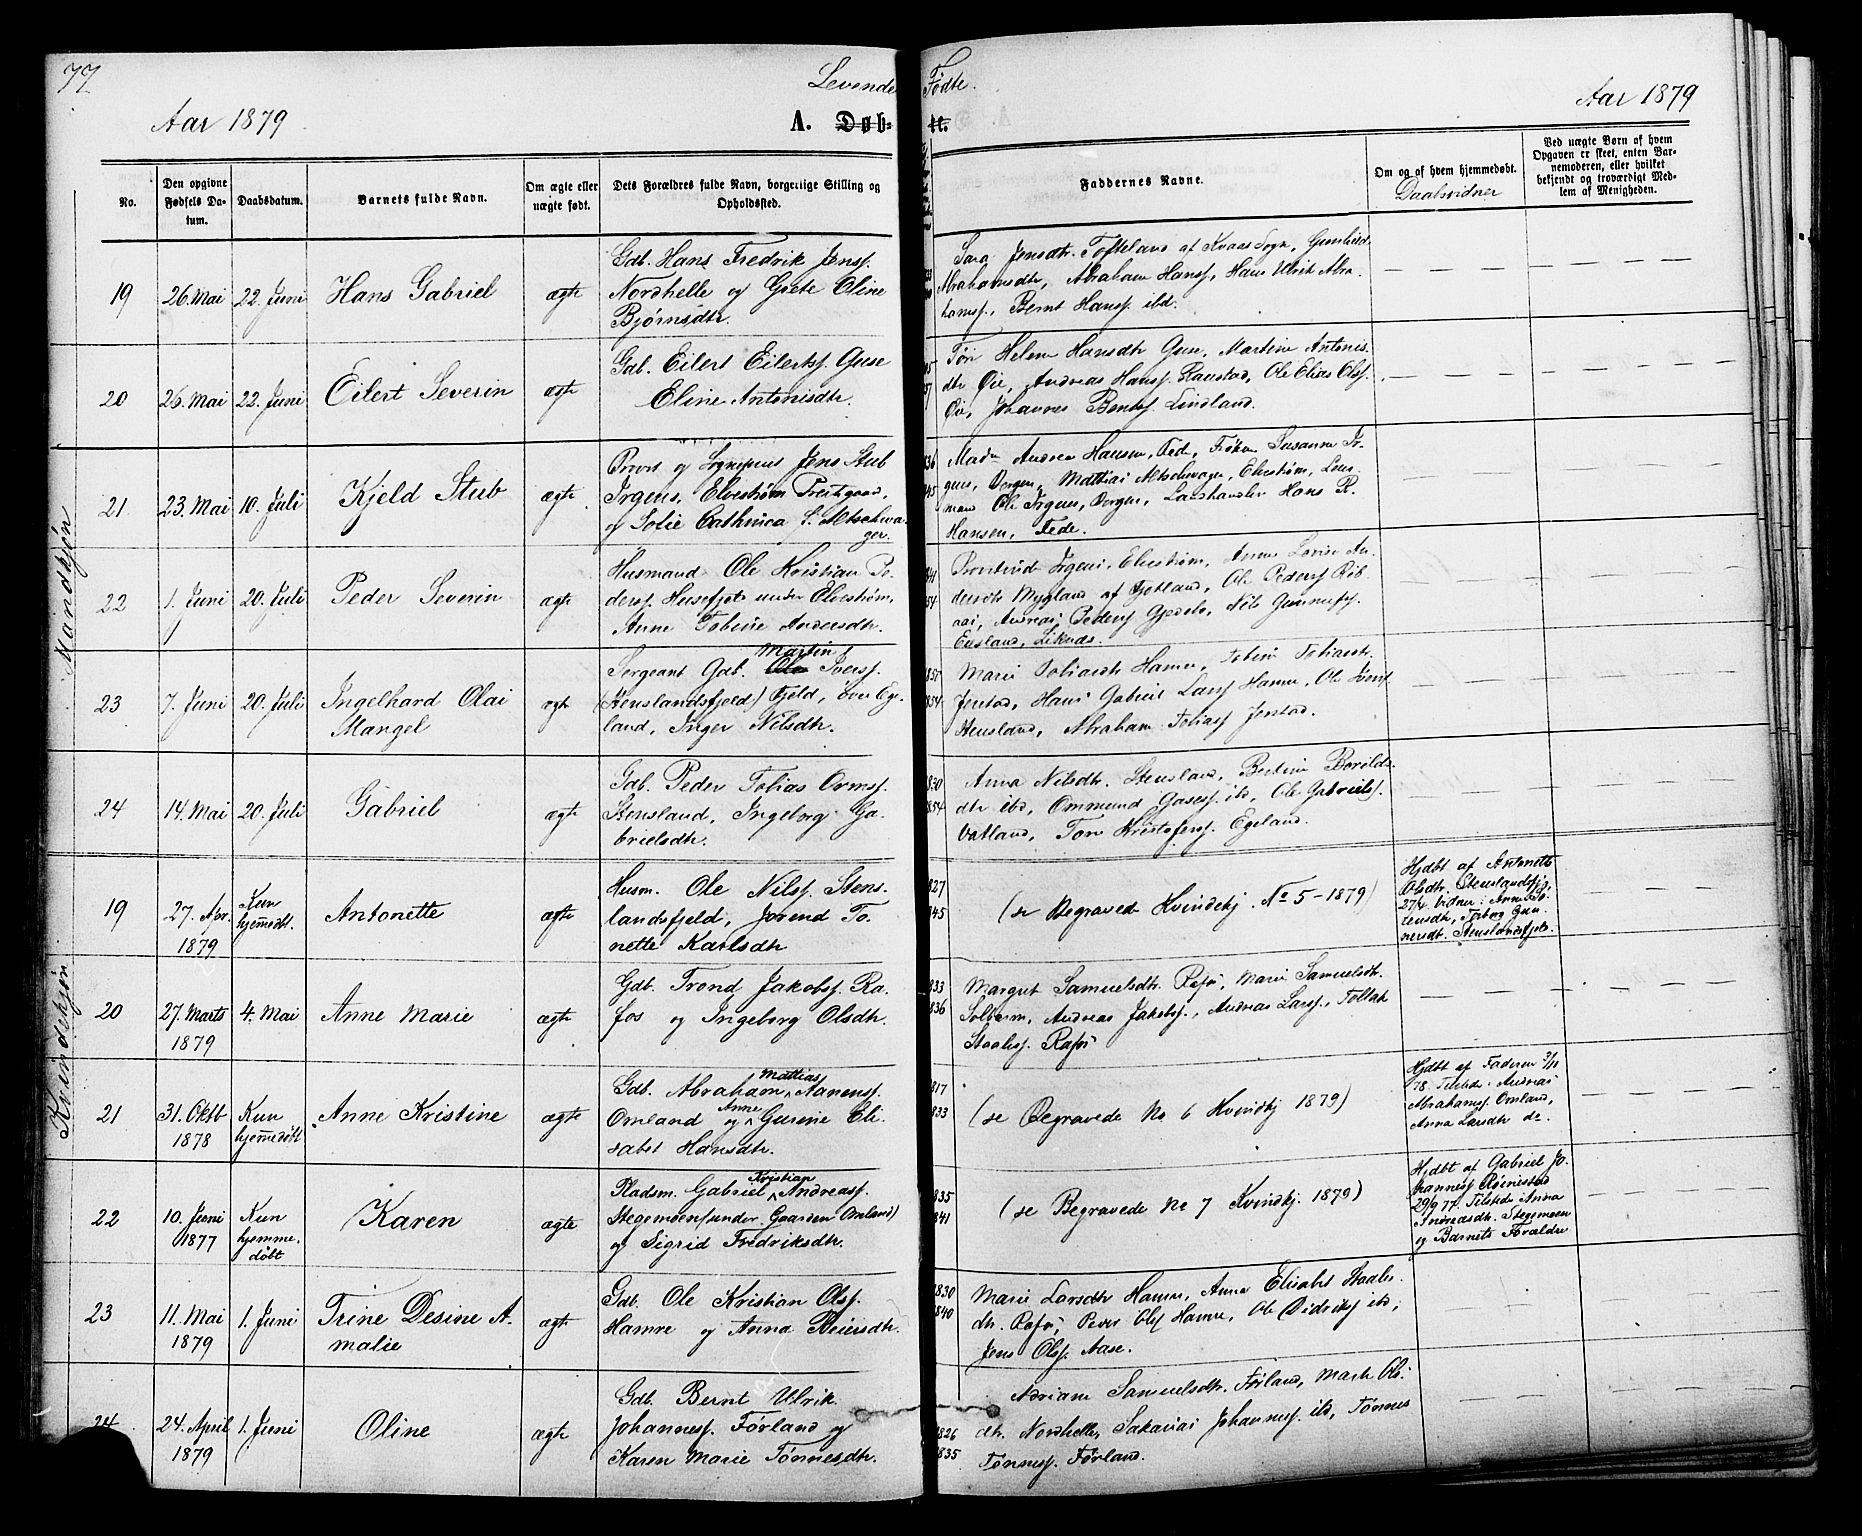 77
Levende Fødte.
Aar 1879
A. Døbte.
Aar 1879
No.
Den opgivne Fødsels Datum.
Daabsdatum.
Barnets fulde Navn.
Om ægte eller uægte født.
Dets Forældres fulde Navn, borgerlige Stilling og Opholdssted.
Faddernes Navne.
Om og af hvem hjemmedøbt.
Daabsvidner
Ved uægte Børn af hvem Opgaven er skeet, enten Barnemoderen, eller hvilket bekjendt og troværdigt Medlem af Menigheden.
Mandkjøn
19 26. Mai 22. Juni Hans Gabriel ægte
Gdb. Hans Fredrik Jensf.
Nordhelle og Grete Eline
Bjørnsdtr.
Sara Jensdtr. Tofteland af Kvaas Sogn, Gunhild
Abrahamsdtr, Abraham Hansf, Hans Ulrik Abra-
hamsf., Bernt Hansf ibd.
20 26. Mai 22. Juni Eilert Severin ægte
Gdb. Eilert Eilertsf. Guse
Eline Antonisdtr.
Helene Hansdtr Guse, Martine Antonis-
dtr Øie, Andreas Hansf. Raustad, Ole Elias Olsf.
Øie, Johannes Bentsf. Lindland.
21 23. Mai 10. Juli Kjeld Stub ægte
Provst og Sognepræst Jens Stub
Irgens, Elvestrøm Prestgaard,
og Sofie Cathrica f. Altschwa-
ger.
Mad. Andrea Hansen, Fede, Frøken Susanne Ir-
gens, Bergen, Mathias Altschwager, Elvestrøm, Lens-
mand Ole Irgens, Bergen, Landhandler Hans R.
Hansen, Fede.
22 1. Juni 20. Juli Peder Severin ægte
Husmand Ole Kristian Pe-
dersf. Husefjeld under Elvestrøm,
Anne Tobine Andersdtr.
Provstinde Irgens, Elvestrøm, Anne Lovise An-
dersdtr Mygland af Fjotland, Ole Pedersf
Andreas Pedersf Gjedebo, Nils Gunnufsf
Egsland, Liknes.
23 7. Juni 20. Juli Ingelhard Olai
Mangel ægte
Sergeant Gdb. Ole Martin Iversf.
(Stenslandsfjeld) Fjeld, over Ege-
land, Inger Nilsdtr.
Marie Tobiasdtr Hamre, Tobine Tobiasdtr.
Jerstad, Hans Gabriel Larsf Hamre, Ole Iversf
Stensland, Abraham Tobiasf Jerstad.
24 14. Mai 20. Juli Gabriel ægte
Gdb. Peder Tobias Ormsf.
Stensland, Ingeborg Ga-
brielsdtr.
Anna Nilsdtr. Stensland, Bertine Borilds-
dtr ibd, Ommund Gasesf. ibd, Ole Gabrielsf.
Vatland, Tore Kristofersf. Egeland.
Kvindekjøn
19 27. Apr. 1879 Kun hjemmedt. Antonette ægte
Husm. Ole Nilsf. Stens-
landsfjeld, Jorend To-
nette Karlsdtr
(se Begravede Kvindekj. No 5 - 1879)
Hjdbt af Antonette
Olsdtr. Stenslandsfj.
27/4 Vidner: Anne To-
rensdtr, Torborg Gun-
nersdt. Stenslandsfjeld.
20 27. Marts 1879 4. Mai Anne Marie ægte
Gdb. Trond Jakobsf. Ra-
fos og Ingeborg Olsdtr.
Margret Samuelsdtr. Rafos, Marie Samuelsdtr.
Solheim, Andreas Jakobsf., Andreas Larsf., Tollak
Staalesf. Rafos
21 31. Oktb 1878 Kun hjemmedøbt Anne Kristine ægte
Gdb. Abraham Mathias Aanensf.
Omland og Anne Gurine Eli-
sabet Hansdtr.
(se Begravede No 6 Kvindkj 1879)
Hjdbt af Faderen 3/11
78. Tilstede: Andreas
Abrahamsf. Omland,
Anna Larsdtr do.
22 10. Juni 1877 Kun hjemme-
døbt Karen ægte
Pladsm. Gabriel Kristian Andreasf.
Stegemoen (under Gaarden Omland)
og Sigrid Fredriksdtr.
(se Begravede No 7 Kvindkj. 1879)
Hjdbt af Gabriel Jo-
hannesf Røinestad
29/9 77. Tilstede Anna
Andreasdtr. Stegemoen
og Barnets Forældre
23 11. Mai 1879 1. Juni Trine Desine A-
malie ægte
Gdb. Ole Kristian Olsf.
Hamre og Anna Peiersdtr.
Marie Larsdtr Hamre, Anna Elisabet Staales-
dtr. Rafos, Peder Olsf Hamre, Ole Didriksf ibd,
Jens Olsf. Aase.
24 24. April 1879 1. Juni Oline ægte
Gdb. Bernt Ulrik
Johannesf. Førland og
Karen Marie Tønnesdtr.
Adriane Samuelsdtr. Førland, Marte Ols-
dtr. Nordhelle, Sakarias Johannesf. ibd, Tønnes
Tønnesf. Førland.